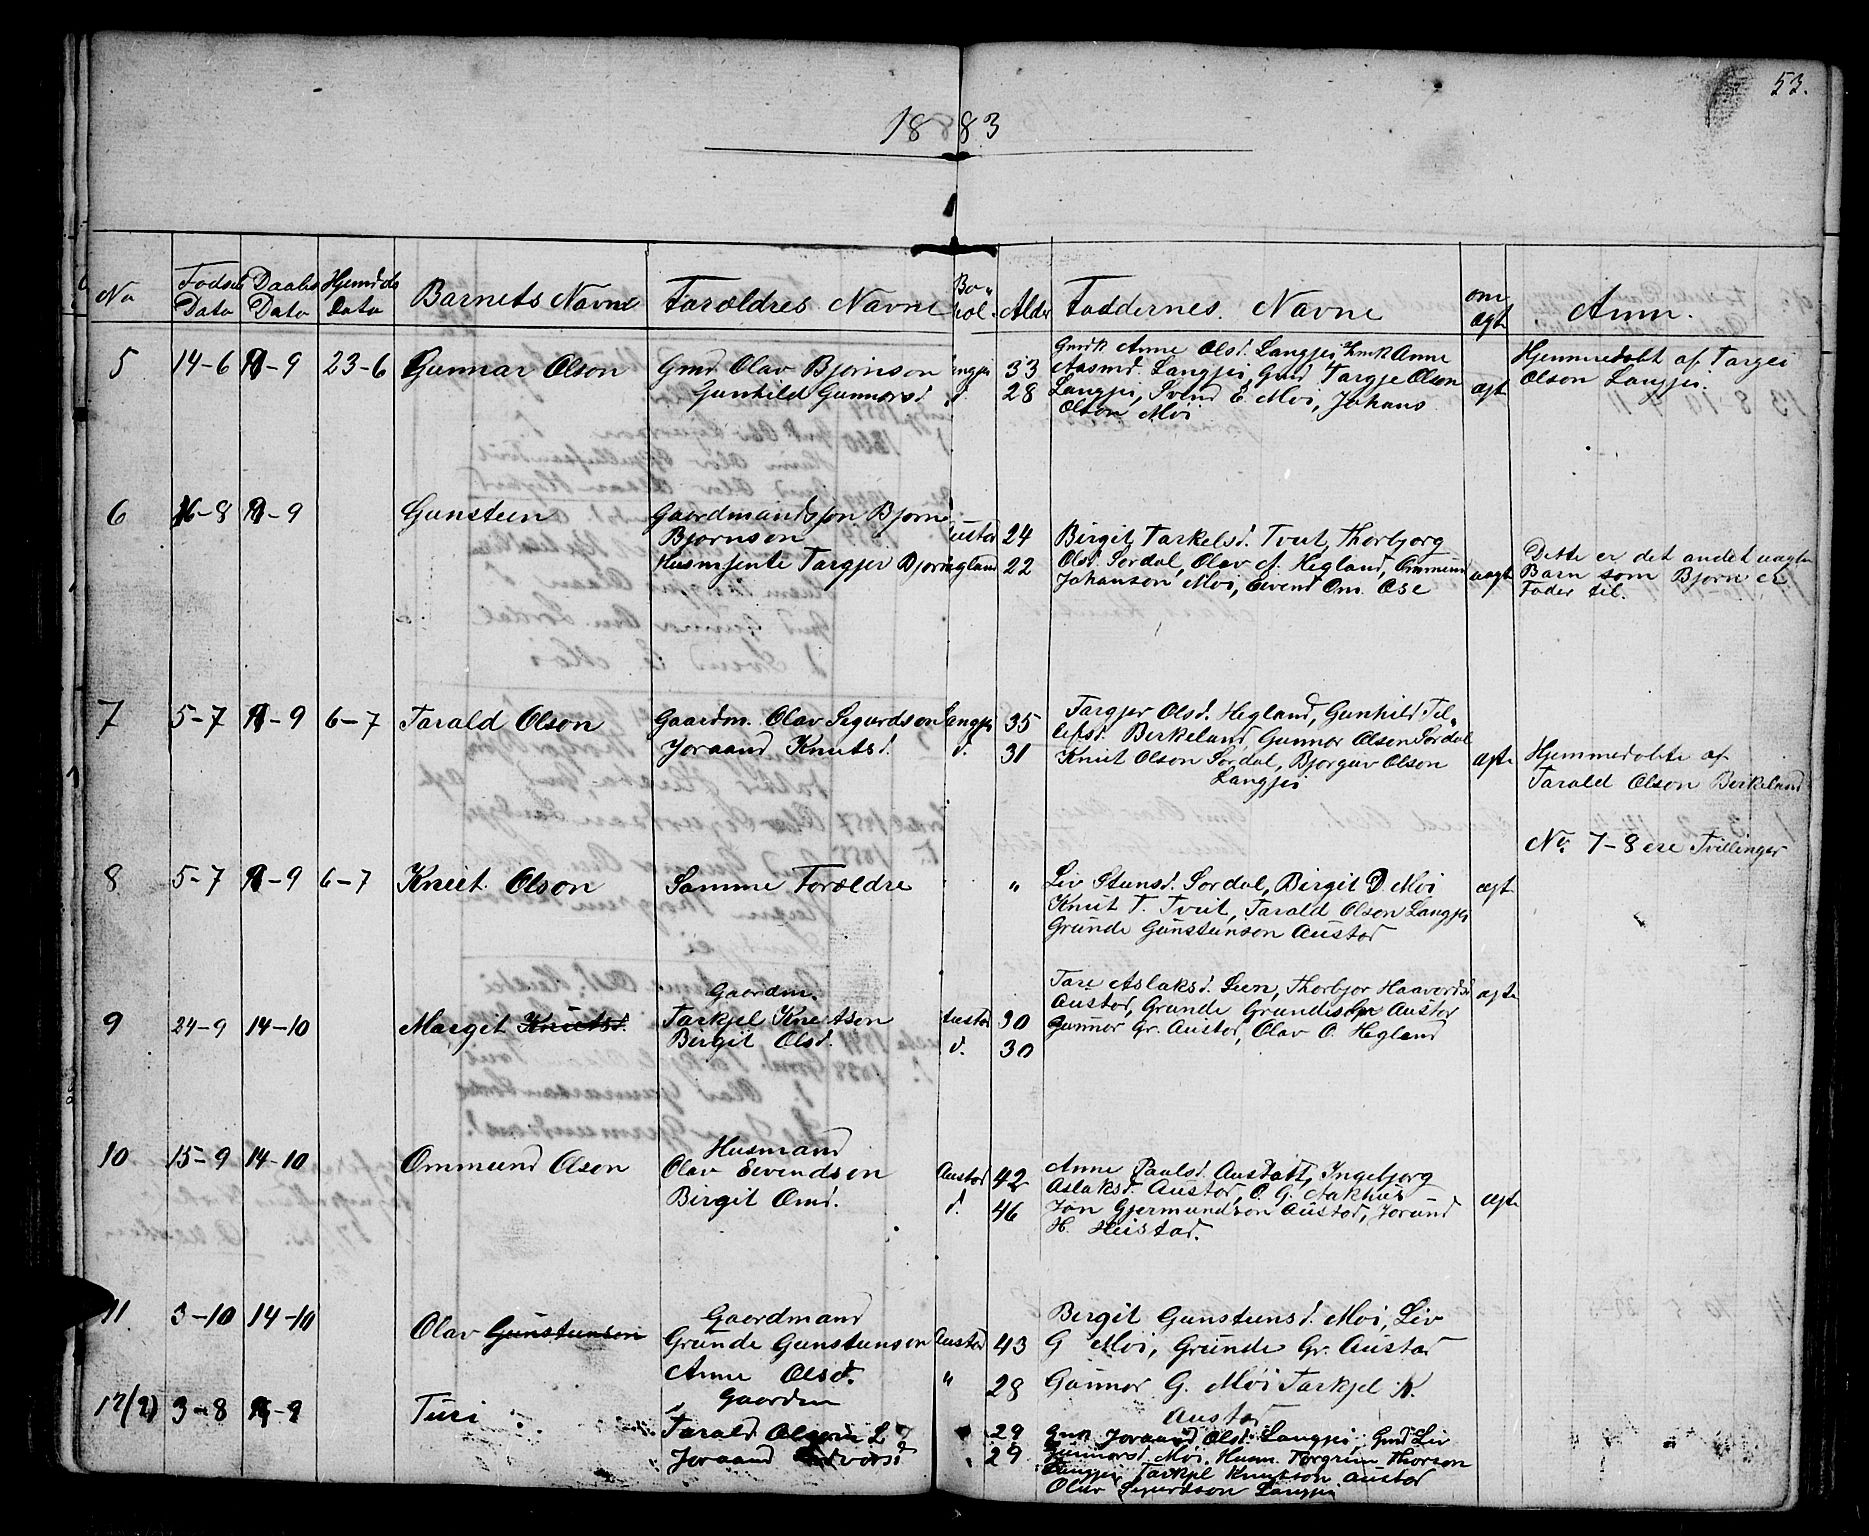 53.
1883
No Fødsels Dato Daabs Dato Hjemdøbs Dato Barnets Navne Forældres Navne Bopæl. Alder Faddernes Navne om ægte Anm.
5 14-6 9-9 23-6 Gunnar Olson Gmd Olav Bjørnson Langjei 33
Gunhild Gunnarsd. d. 28
Gmdk Anne Olsd. Langjei, Gmk Anne
Aasmd. Langjei, Gmd Targje Olson
Langjei, Svend E. Moi, Johans
Olson Moi
ægte
Hjemmedøbt af Targei
Olson Langjei.
6 16-8 9-9 Gunsteen Gaardmandssøn Bjørn
Bjørnson Austad 24
Husmjente Targjer Bjørns Hegland 22
Birgit Tarkelsd. Tveit, Thorbjorg
Olsd. Sordal, Olav A. Hegland, Ommund
Johanson Moi, Eivend Om. Ose
uægte
Dette er det andet uægte
Barn som Bjørn er
Fader til.
7 5-7 9-9 6-7 Tarald Olson Gaardm. Olav Sigurdson Langjei 35
Joraand Knutsd. d. 31
Targjer Olsd. Hegland, Gunhild Tel-
lefsd. Birkeland, Gunnar Olson Sordal
Knut Olson Sordal, Bjorguv Olson
Langjei
ægte
Hjemmedøbte af
Tarald Olson Birkeland
No. 7-8 ere Tvillinger
8 5-7 9-9 6-7 Knut Olson Samme Forældre "
Liv Stensd. Sordal, Birgit D Moi
Knut T. Tveit, Tarald Olson Langjei
Grunde Gunstenson Austad
ægt
9 24-9 14-10 Margit Knutsd. Gaardm.
Tarkjel Knutson Austad 30
Birgit Olsd. d. 30
Tare Aslaksd. Lien, Thorbjor Haavordsd.
Austad, Grunde Grundeson Austad
Gunnar Gr. Austad, Olav O. Hegland
ægte
10 15-9 14-10 Ommund Olson Husmand
Olav Eivendson Austad 42
Birgit Omd. d. 46
Anne Paulsd. Austad, Ingebjorg
Aslaksd. Austad, O. G. Aakhus
Jon Gjermundson Austad, Jorund
H. Heistad.
ægte
11. 3-10 14-10 Olav Gunstenson Gaardmand
Grunde Gunstenson Austad 43
Anne Olsd. " 28
Bergit Gunstensd. Moi, Liv
G Moi, Grunde Gr. Austad
Gunnar G. Moi Tarkjel K.
Austad
12(2) 3-8 9-9 Turi Gaardm
Tarald Olson L 29
Joraand 29
Gmk Joraand Olsd. Langjei, Gmd Liv
Gunnarsd. Moi, Husm. Torgrim Thorson
Langjei, Tarkjel Knutson Austad
Olav Sigurdson Langjei